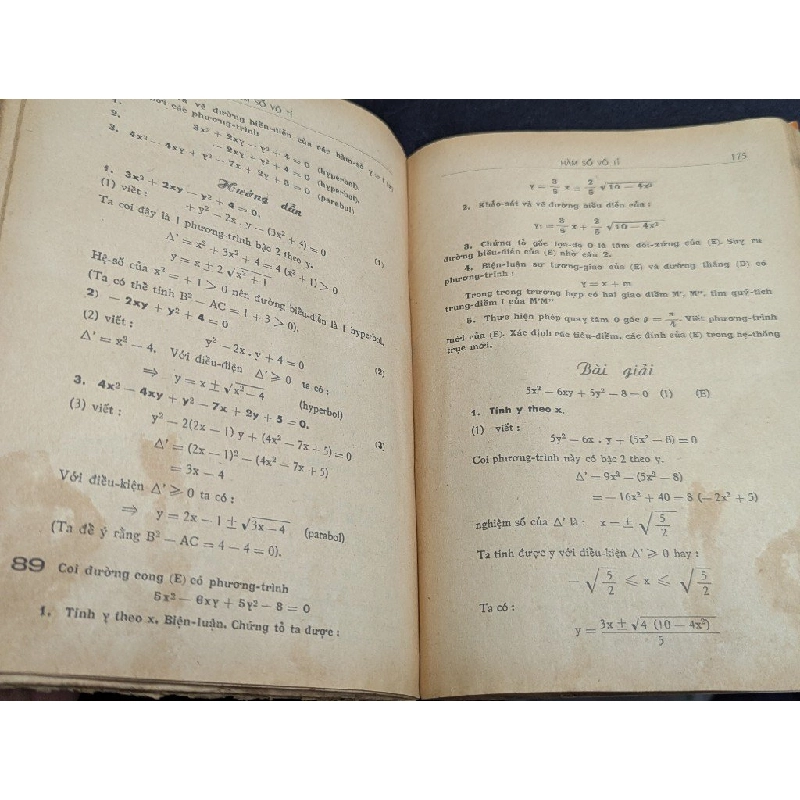 SỐ VÔ
vẽ đường biểu-diễn của các hàm-số y
các phương-trình
1. 3x² + 2xy — y² + 4 = 0 (hypebol).
2. — 2xy + y² + 4 = 0 (hypebol).
3. 4x² — 4xy + y² — 7x + 2y + 5 = 0 (parabol)
Hướng dẫn
1. 3x² + 2xy — y² + 4 = 0.
(1) viết : + y² — 2x . y — (3x² + 4) = 0 (1)
Ta coi đây là 1 phương-trình bậc 2 theo y.
Δ' = x² + 3x² + 4 = 4 (x² + 1) > 0
y = x ± 2 √x² + 1
Hệ-số của x² = + 1 > 0 nên đường biểu-diễn là 1 hyperbol.
(Ta có thể tính B² — AC = 1 + 3 > 0).
2) — 2xy + y² + 4 = 0
(2) viết : y² — 2x . y + 4 = 0 (2)
Δ' = x² — 4. Với điều-kiện Δ' ⩾ 0 ta có :
⇒ y = x ± √x² — 4 (hyperbol)
3. 4x² — 4xy + y² — 7x + 2y + 5 = 0.
(3) viết : y² — 2(2x — 1) y + (4x² — 7x + 5) = 0 (3)
Δ' = (2x — 1)² — (4x² — 7x + 5)
= 3x — 4
Với điều-kiện Δ' ⩾ 0 ta có :
⇒ y = 2x — 1 ± √3x — 4 (parabol)
(Ta để ý rằng B² — AC = 4 — 4 = 0).
89 Coi đường cong (E) có phương-trình
5x² — 6xy + 5y² — 8 = 0
1. Tính y theo x. Biện-luận. Chứng tỏ ta được :
HÀM SỐ VÔ TỈ 175
y = 3/5 x ± 2/5 √10 — 4x²
2. Khảo-sát và vẽ đường biểu diễn của :
y₁ = 3/5 x + 2/5 √10 — 4x²
3. Chứng tỏ gốc tọa-độ 0 là tâm đối-xứng của (E). Suy ra
đường biểu-diễn của (E) nhờ câu 2.
4. Biện-luận sự tương-giao của (E) và đường thẳng (D) có
phương-trình :
y = x + m
Trong trong trường hợp có hai giao điểm M', M'', tìm quỹ-tích
trung-điểm I của M'M''
5. Thực hiện phép quay tâm 0 góc θ = π/4. Viết phương-trình
mới của (E). Xác định các tiêu-điểm, các đỉnh của (E) trong hệ-thống
trục mới.
Bài giải
5x² — 6xy + 5y² — 8 = 0 (1) (E)
1. Tính y theo x.
(1) viết :
5y² — 6x . y + (5x² — 8) = 0
Coi phương-trình này có bậc 2 theo y.
Δ' = 9x² — (5x² — 8)
= — 16x² + 40 = 8 (— 2x² + 5)
nghiệm số của Δ' là : x = ± √5/2
Ta tính được y với điều-kiện Δ' ⩾ 0 hay :
— √5/2 ⩽ x ⩽ √5/2
Ta có :
y = 3x ± √4 (10 — 4x²) / 5